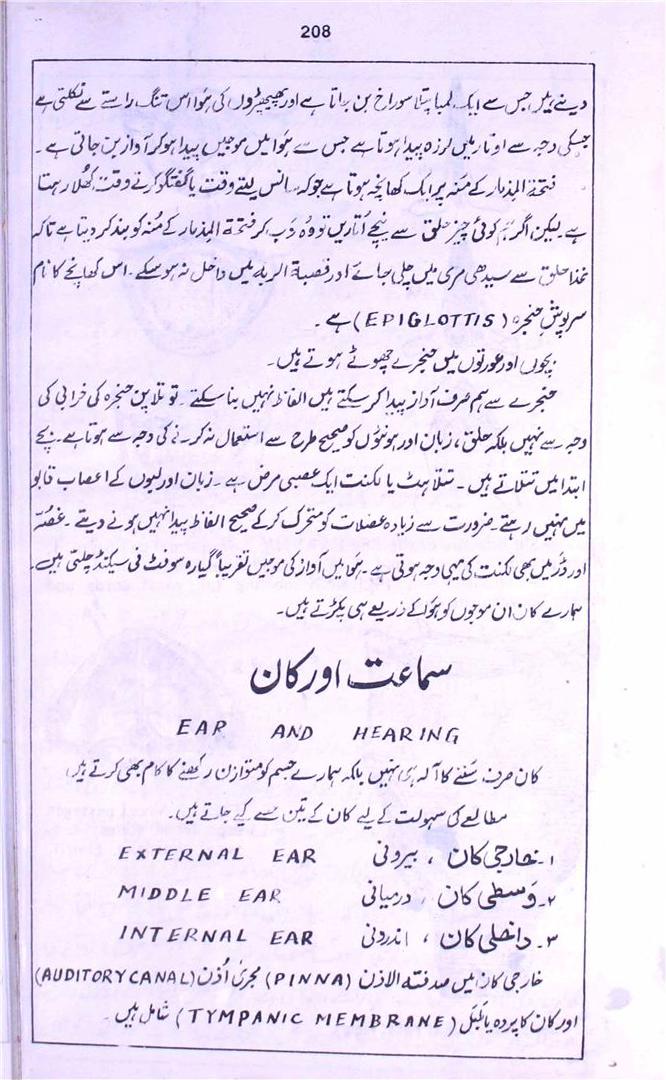 208
دیتے ہیں جس سے ایک لمبا پتلا سوراخ بن جاتا ہے اور پھیپھڑوں کی ہوا اس تنگ راستے سے نکلتی ہے
جسکی وجہ سے اوتار میں لرزہ پیدا ہوتا ہے جس سے ہوا میں موجیں پیدا ہو کر آواز بن جاتی ہے۔
فتحۃ المذمار کے منہ پر ایک کھانچہ ہوتا ہے جو کہ سانس لیتے وقت یا گفتگو کرتے وقت کھلا رہتا
ہے لیکن اگر ہم کوئی چیز حلق سے نیچے اُتاریں تو وہ دَب کر فتحۃ المذمار کے مُنہ کو بند کر دیتا ہے تاکہ
غذا حلق سے سیدھی مری میں چلی جائے اور قصبۃ الریہ میں داخل نہ ہو سکے۔ اس کھانچے کا نام
سرپوشِ حنجرہ (EPIGLOTTIS) ہے۔
بچوں اور عورتوں میں حنجرے چھوٹے ہوتے ہیں۔
حنجرے سے ہم صرف آواز پیدا کر سکتے ہیں الفاظ نہیں بنا سکتے۔ توتلا پن حنجرہ کی خرابی کی
وجہ سے نہیں بلکہ حلق، زبان اور ہونٹوں کو صحیح طرح سے استعمال نہ کرنے کی وجہ سے ہوتا ہے۔ بچے
ابتدا میں تتلاتے ہیں۔ تتلاہٹ یا لکنت ایک عصبی مرض ہے۔ زبان اور لبوں کے اعصاب قابو
میں نہیں رہتے۔ ضرورت سے زیادہ عضلات کو متحرک کر کے صحیح الفاظ پیدا نہیں ہونے دیتے۔ غصّہ
اور ڈر میں بھی لکنت کی یہی وجہ ہوتی ہے۔ ہوا میں آواز کی موجیں تقریباً گیارہ سو فٹ فی سیکنڈ چلتی ہیں۔
ہمارے کان ان موجوں کو ہوا کے ذریعے ہی پکڑتے ہیں۔
سماعت اور کان
EAR AND HEARING
کان صرف سننے کا آلہ ہی نہیں بلکہ ہمارے جسم کو متوازن رکھنے کا کام بھی کرتے ہیں
مطالعے کی سہولت کے لیے کان کے تین حصے کیے جاتے ہیں۔
۱۔ خارجی کان، بیرونی EXTERNAL EAR
۲۔ وَسطی کان، درمیانی MIDDLE EAR
۳۔ داخلی کان، اندرونی INTERNAL EAR
خارجی کان میں صدفتہ الاذن (PINNA) مجریٰ اُذن (AUDITORY CANAL)
اور کان کا پردہ یا طبل (TYMPANIC MEMBRANE) شامل ہیں۔